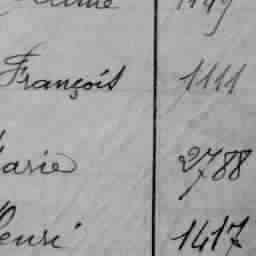 François 1111
Marie 2788
Henri 1417